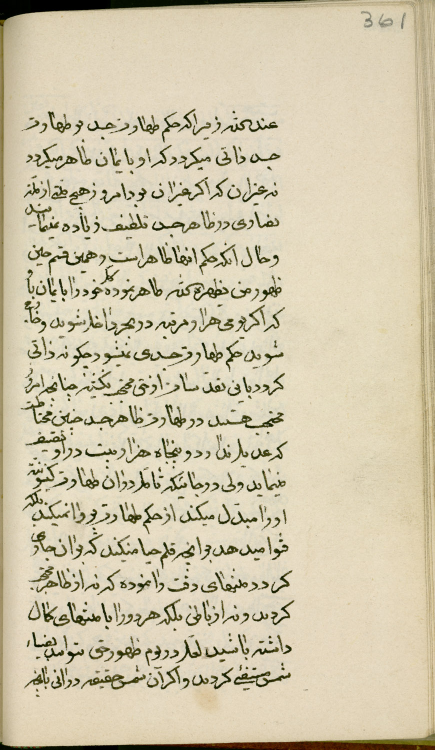 361
عند الله زیرا که حکم طهارت جسد نو طهارت
جسد ذاتی میگردد که او بایمان طاهر میگردد
نه غیر ان که اگر غیر ان بود امروز هیچ ملتی از ملة
نصاری در ظاهر جسد تلطیف زیاده نمینمایند
و حال انکه حکم انها ظاهر است و همین قسم حین
ظهور من یظهره الله طاهر نموده کل خود را بایمان باو
که اگر یومی هزار مرتبه در بحر داخل شوید و خارج
شوید حکم طهارت جسدی نمیشود چگونه ذاتی
گردد یانی نقد ساذج از شیٔ محتجب نگشته چنانچه امروز
محتجب هستید در طهارت ظاهر جسد چنین محتاط
که عدیل ندارد و پنجاه هزار بیت در او تصنیف
مینماید ولی در جائیکه قائل در ان طهارت کینونیة
او را مبدل میکند از حکم طهارت پروا نمیکند بلکه
فتوا میدهد بر انچه قلم حیا میکند که بر ان جاری
گردد منتهای دقت را نموده که نه از ظاهر محتجب
گردید و نه از باطن بلکه هر دو را با منتهای کمال
داشته باشید لعل در یوم ظهور حق توانید بضیاء
شمس مستضیٔ گردید و اگر آن شمس حقیقه در انی بانچه